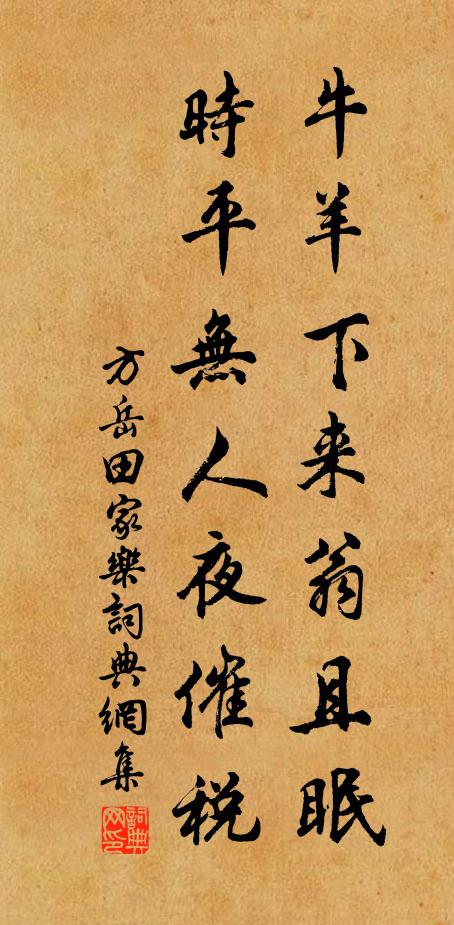 牛羊下来翁且眠
時平無人夜催税
方岳田家樂詞典網集
詞典网印